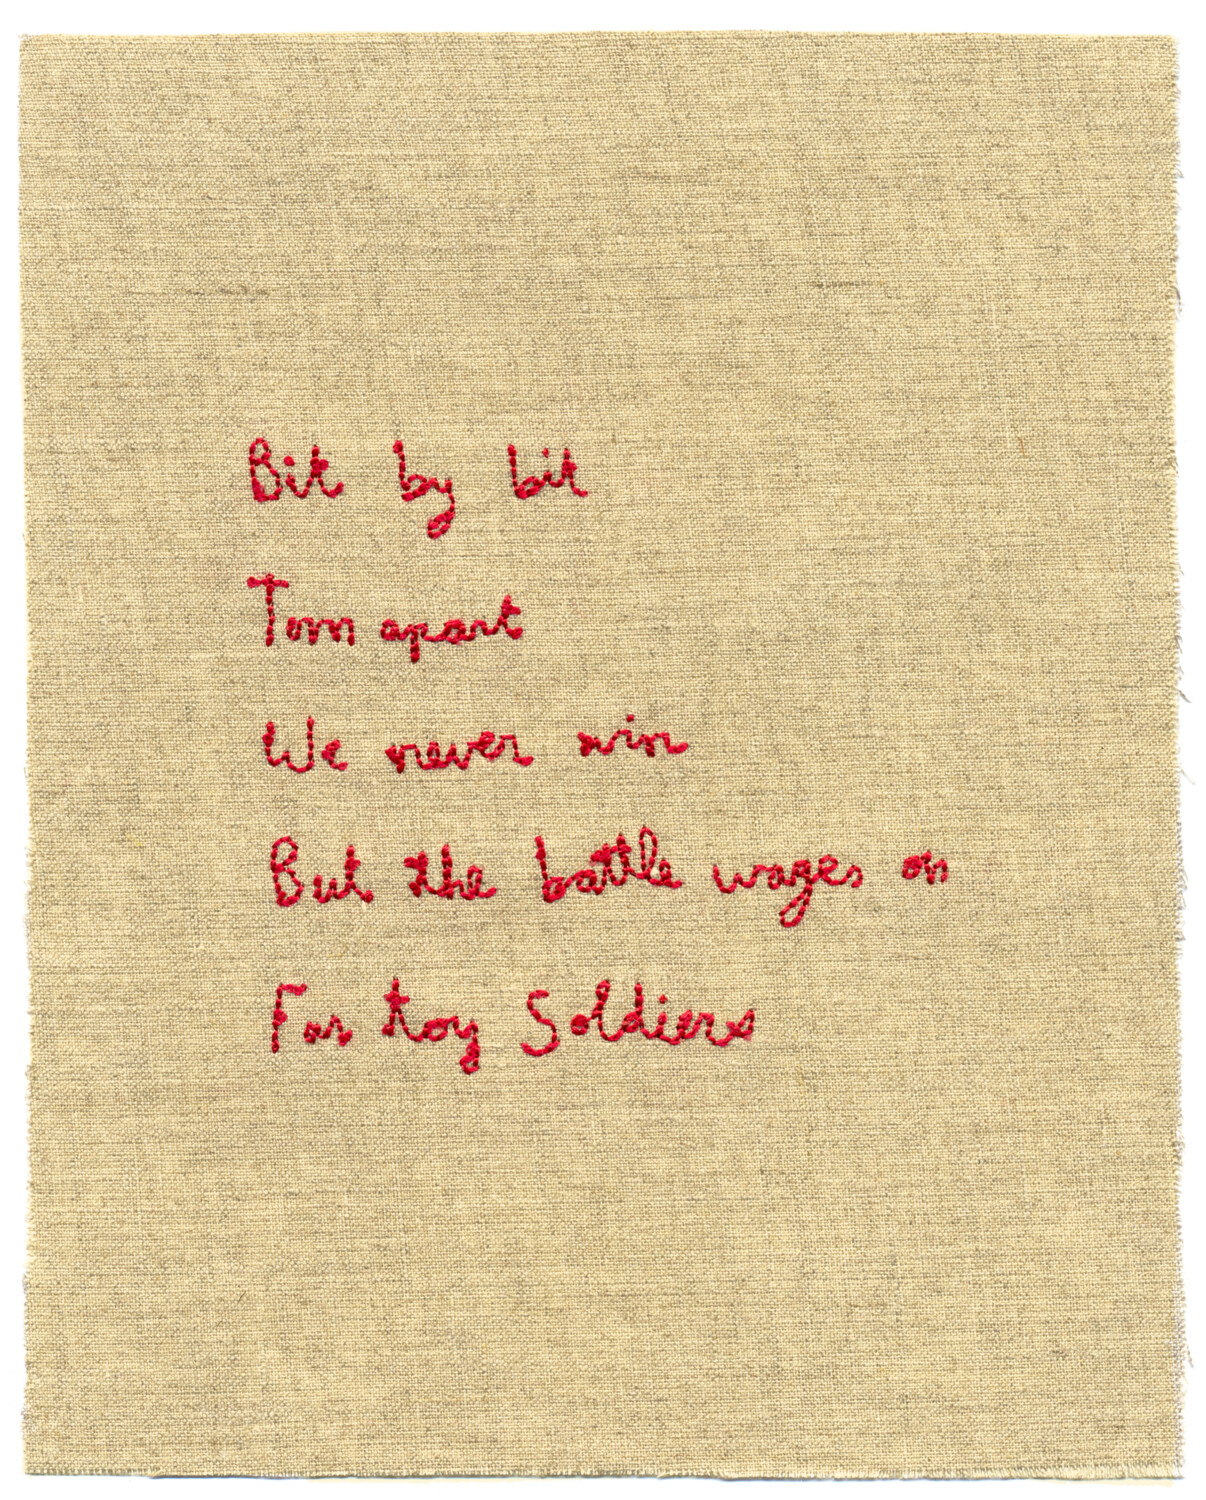 Bit by bit
Torn apart
We never win
But the battle wages on
For toy Soldiers